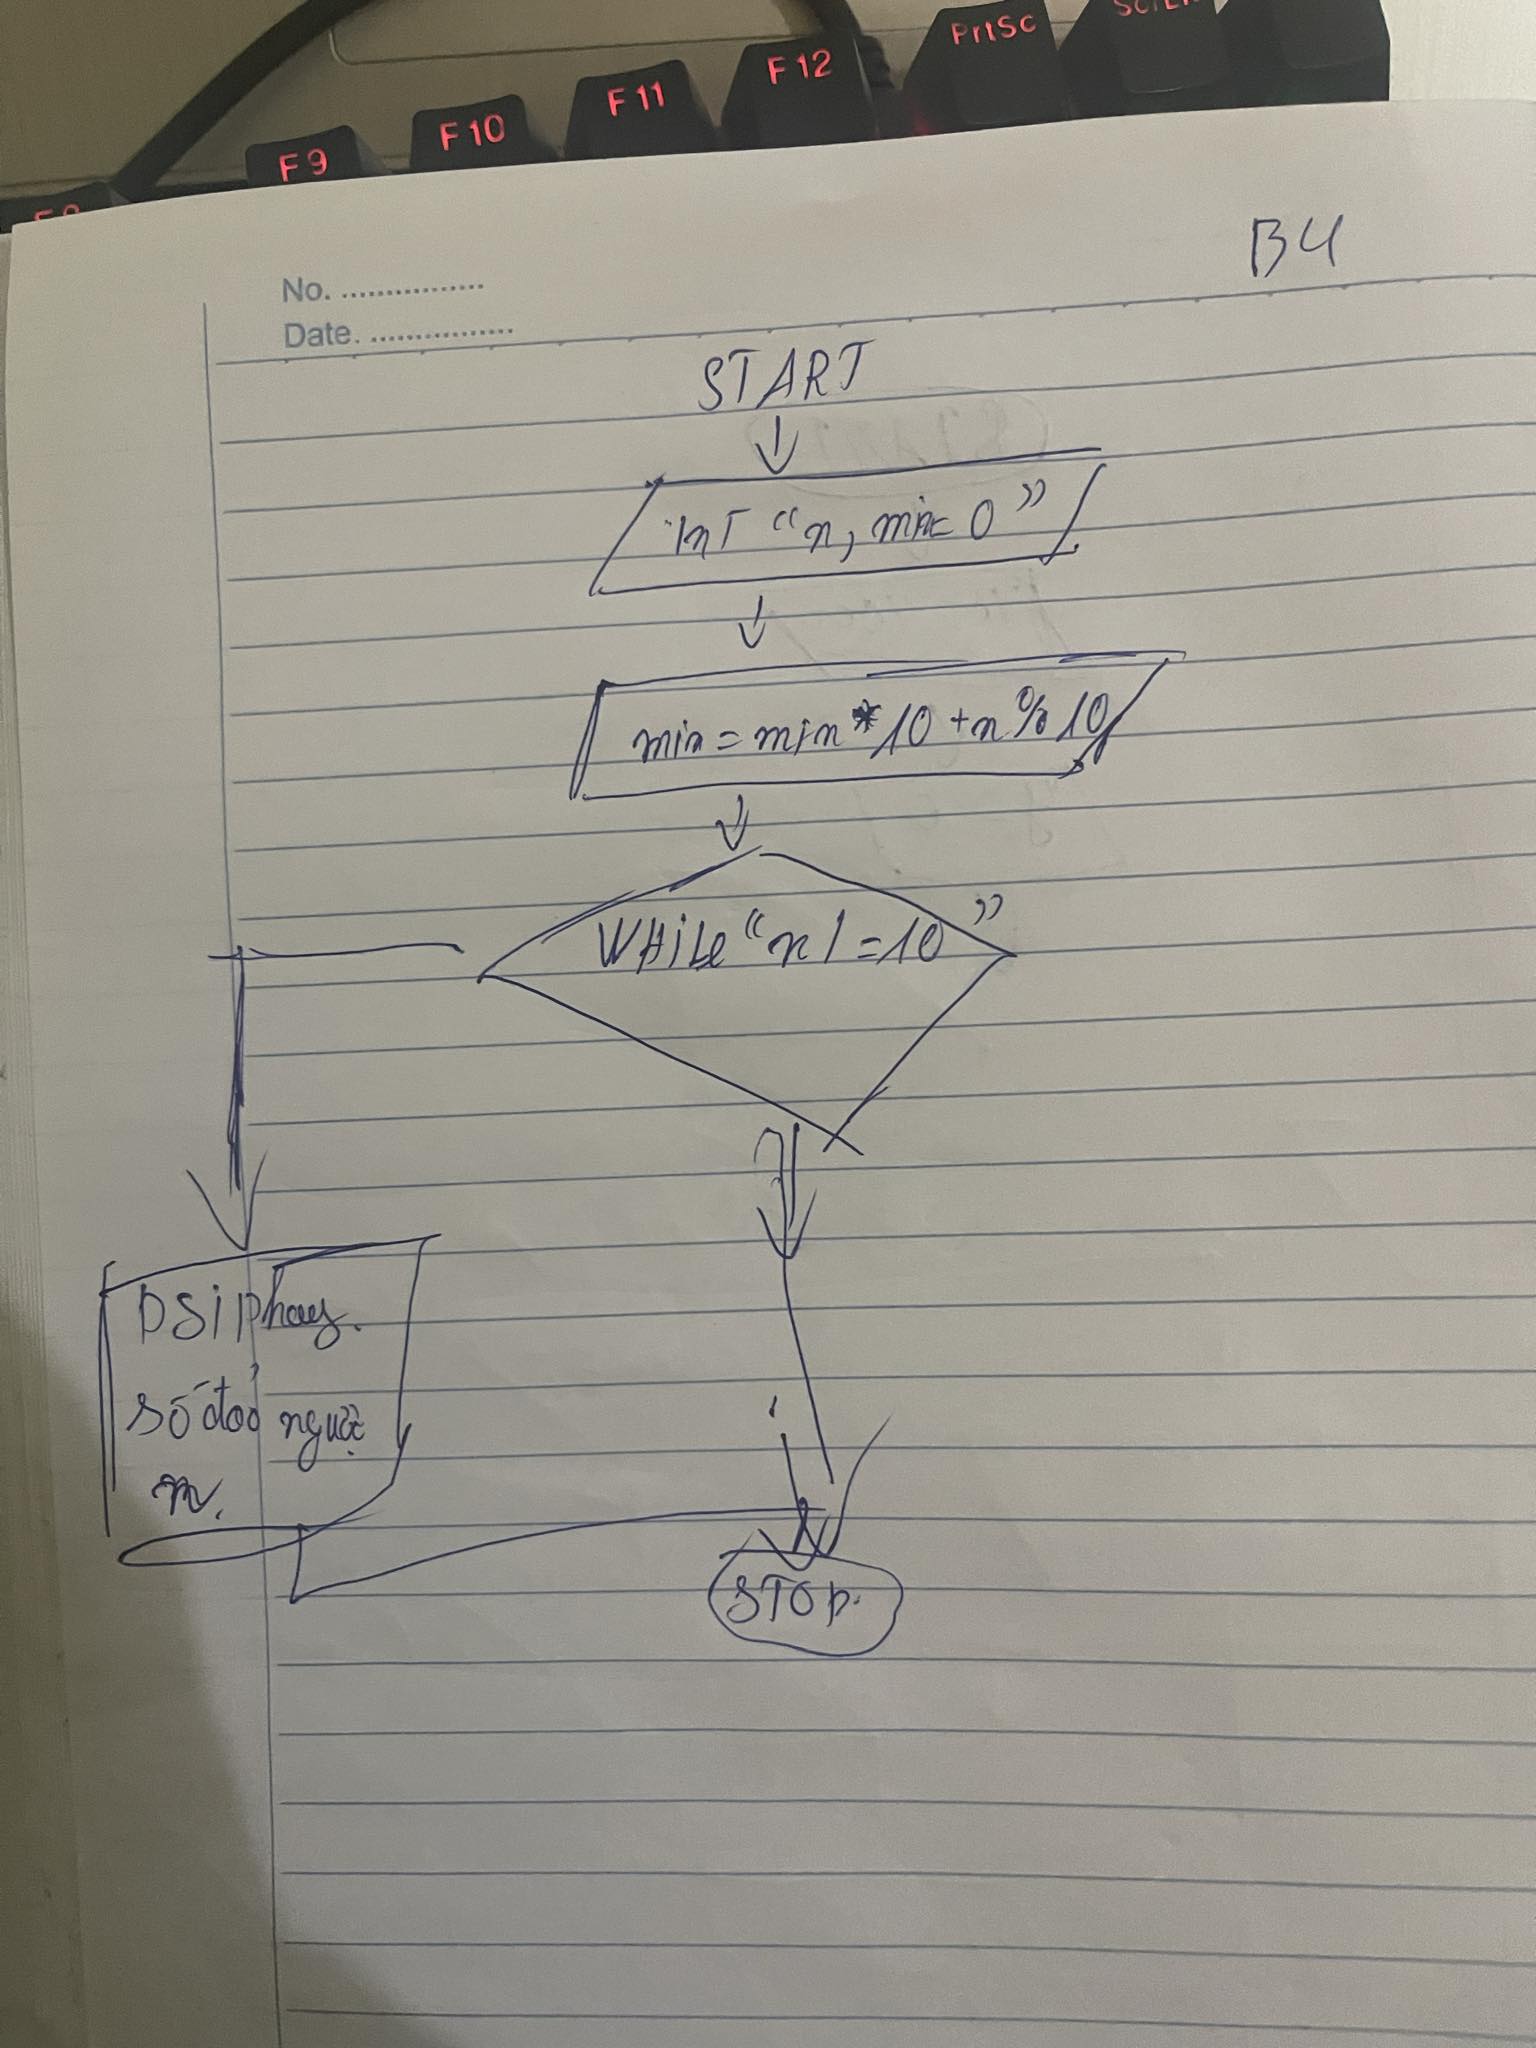 F9
F10
F11
F12
PrtSc
B4
No. ................
Date. ................
START
INT “n, min= 0”
min = min * 10 + n % 10
WHILE “n ! = 10”
DSIPhay.
số đảo người
n.
STOP.